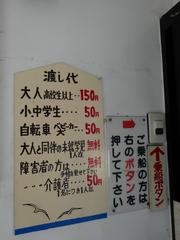 渡し代
大人 高校生以上…150円
小中学生……50円
自転車 ベビーカー…50円
大人と同伴の未就学児 1人迄 無料
障害者の方は 無料
……介護者 50円
1名につき1人迄
ご乗船の方は
右のボタンを
押して下さい
乗船ボタン